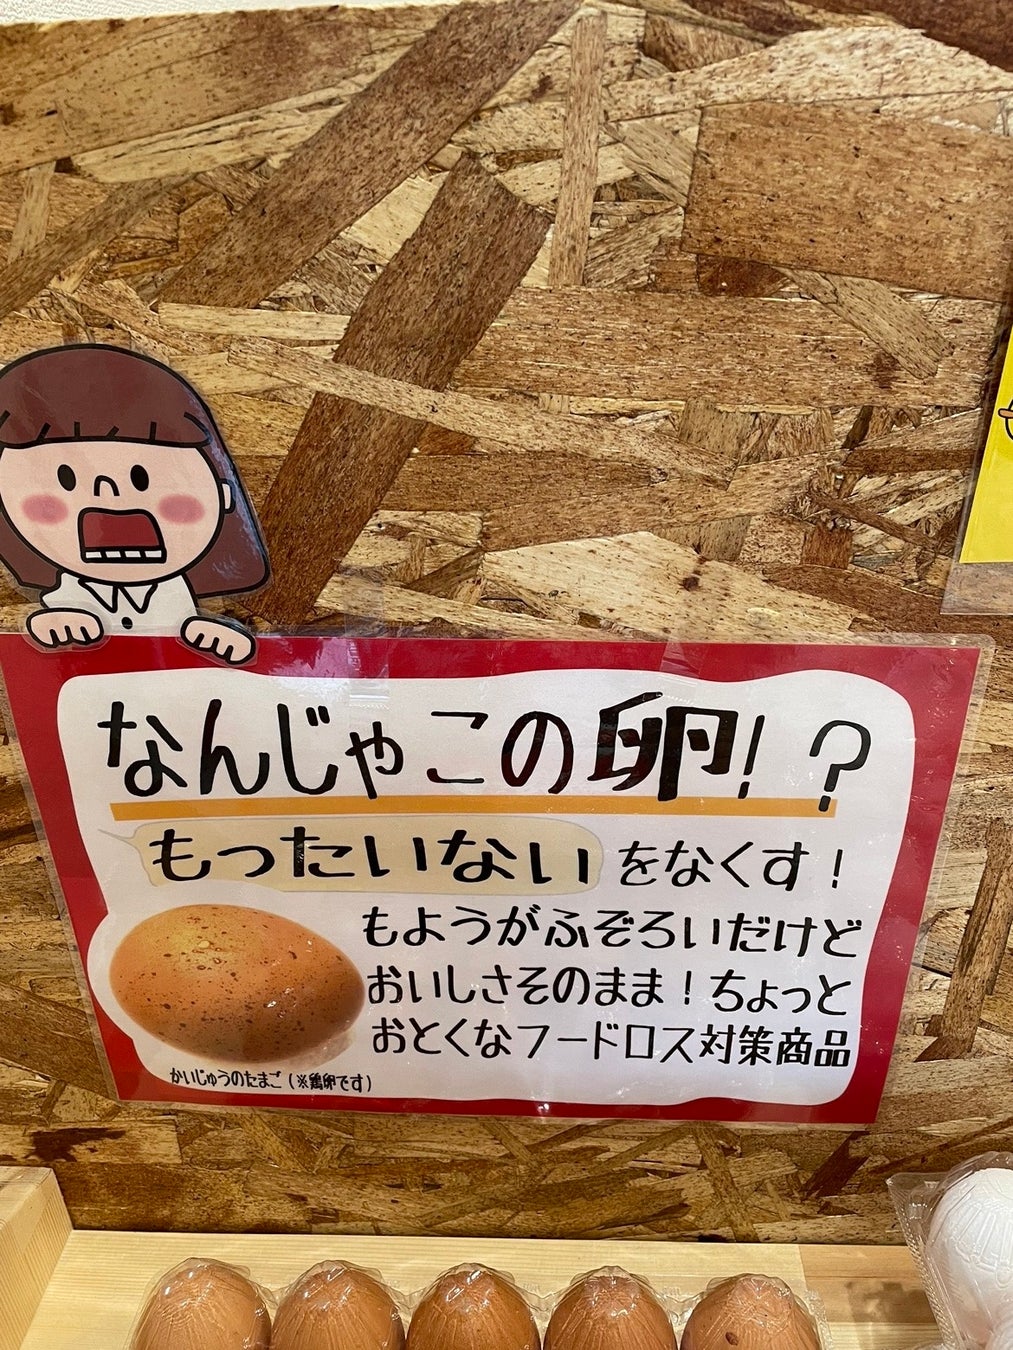 なんじゃこの卵!?
もったいないをなくす!
もようがふぞろいだけど
おいしさそのまま!ちょっと
おとくなフードロス対策商品
かいじゅうのたまご(※鶏卵です)